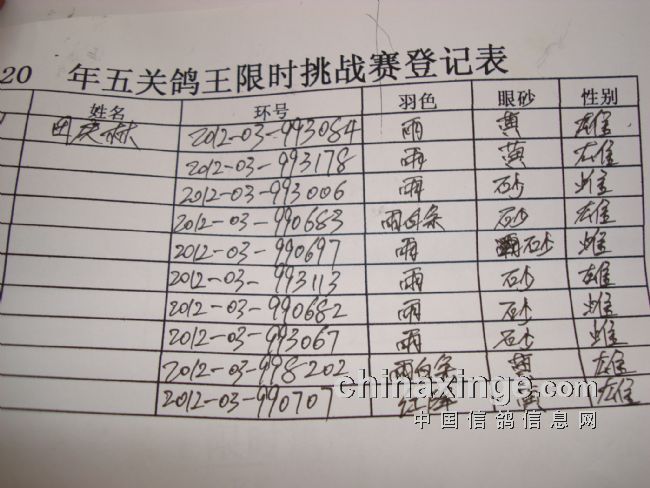 20 年五关鸽王限时挑战赛登记表
姓名 环号 羽色 眼砂 性别
田庆林 2012-03-993084 雨 黄 雄
2012-03-993178 雨 黄 雄
2012-03-993006 雨 砂 雌
2012-03-990683 雨白条 砂 雄
2012-03-990697 雨 砂 雌
2012-03-993113 雨 砂 雄
2012-03-990682 雨 砂 雌
2012-03-993067 雨 砂 雌
2012-03-998202 雨白条 黄 雄
2012-03-990707 红 黄 雄
chinaxinge.com
中国信鸽信息网